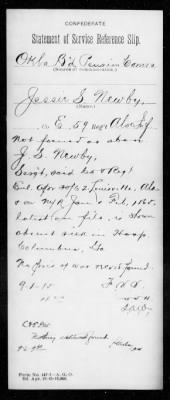 CONFEDERATE
Statement of Service Reference Slip.
Okla B'd Pension Comrs
(Source of communication.)
Jesse S. Newby,
(Name.)
Co E, 59 Reg't Ala Inf
Not found as above
J. S. Newby,
Sergt, said co & Regt
Enl. Apr 30/62 Louisville, Ala
on M/R Jan & Feb, 1865,
latest on file, is shown
absent sick in Hosp
Columbus, Ga
No of was found.
9-1-15
Nothing additional found
Form No. 447-1—A. G. O.